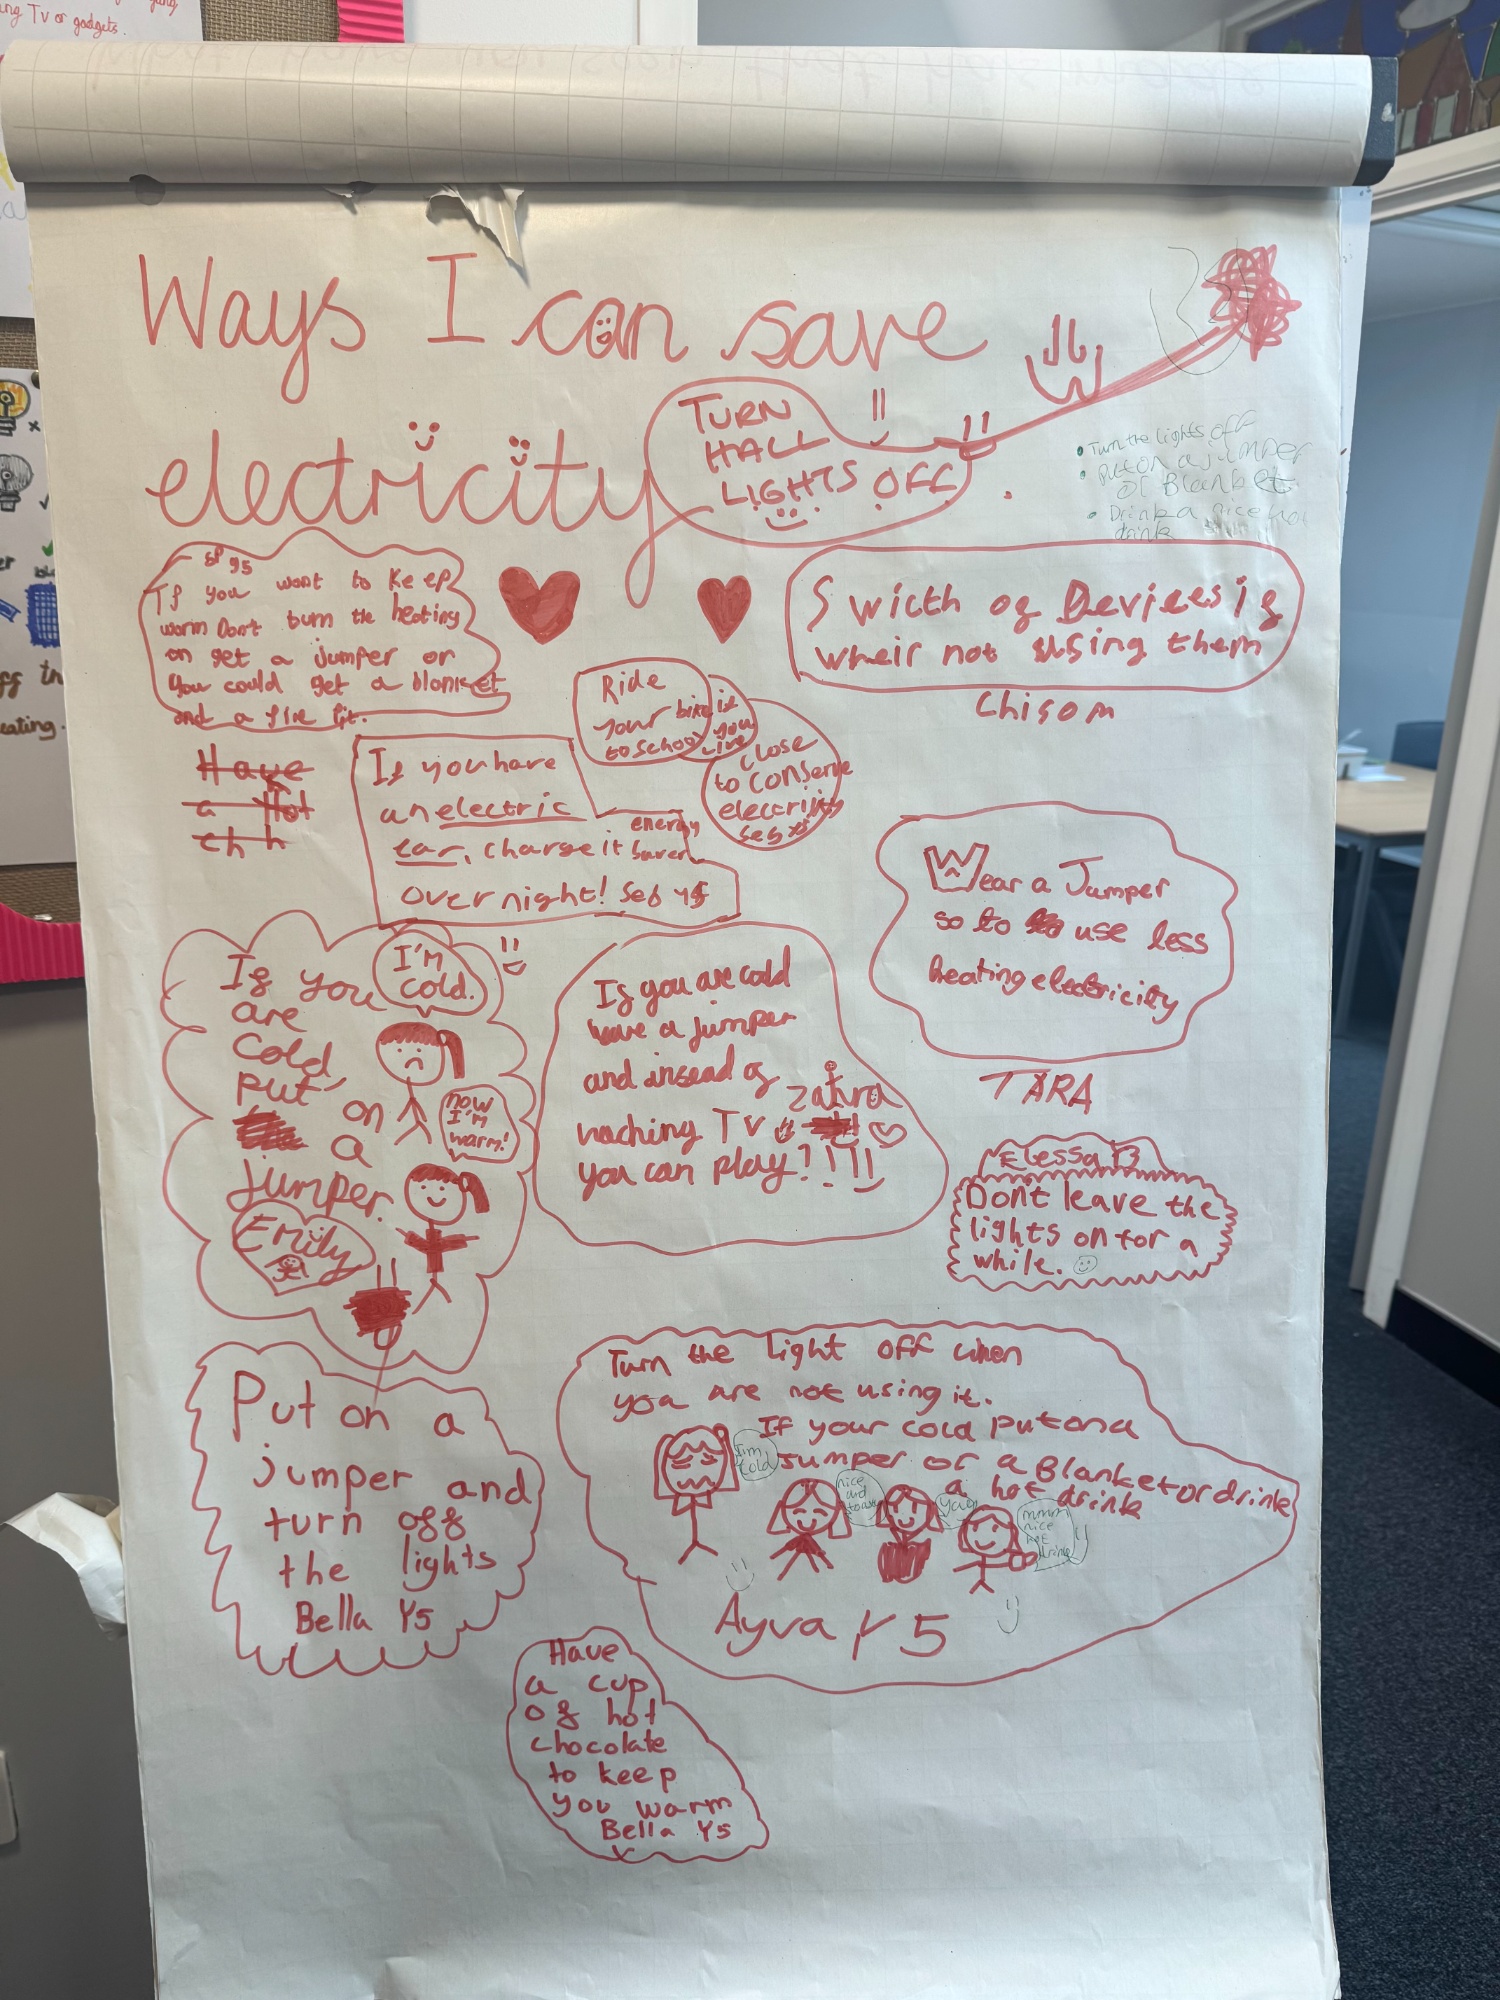 ng TV or gadgets.
Ways I can save
electricity
TURN
HALL
LIGHTS OFF
• Turn the lights off
• Put on a jumper
or Blanket
• Drink a nice hot
drink
If you want to keep
warm Dont turn the heating
on get a jumper or
you could get a blanket
and a fire pit.
Swicth of Devices if
wheir not using them
Chisom
Ride
your bike if
to school you
live
close
to conserve
electricity
Seb
Have
a Hot
ch h
If you have
an electric
energy
car, charge it
over night! Seb Y5
Wear a Jumper
so to use less
heating electricity
TARA
If you
are
cold
put on
a
jumper.
I'M
cold.
now
I'M
warm!
Emily
If you are cold
have a jumper
and insead of
waching TV
you can play!!!!
zahra
Elessa
Dont leave the
lights on for a
while.
Put on a
jumper and
turn off
the lights
Bella Y5
Turn the light off when
you are not using it.
If your cold put on a
Jumper or a Blanket or drink
a hot drink
I'm
cold
nice
and
mmm
nice
hot
drink
Ayva Y5
Have
a cup
of hot
chocolate
to keep
you warm
Bella Y5
eating.